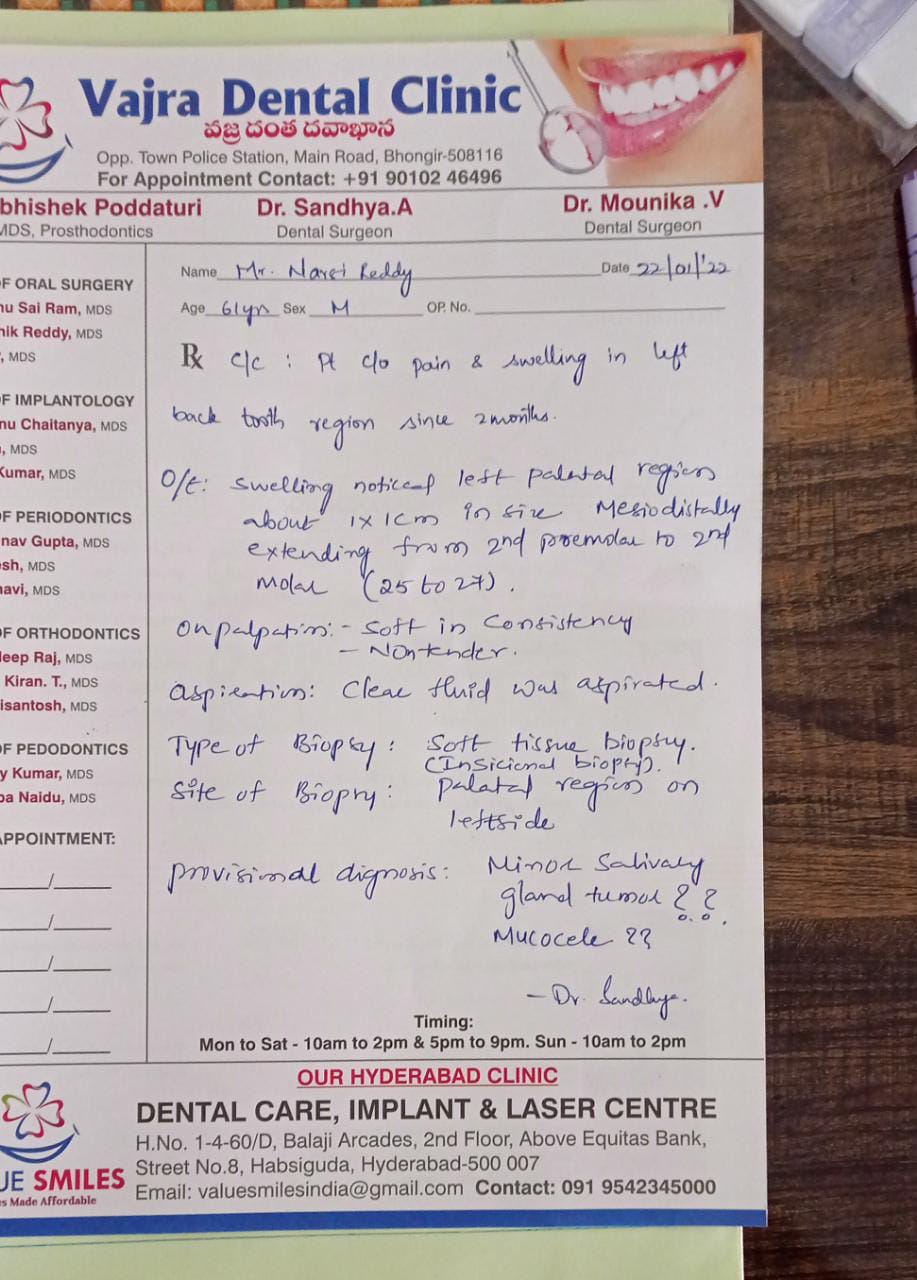 Vajra Dental Clinic
వజ్ర దంత దవాఖాన
Opp. Town Police Station, Main Road, Bhongir-508116
For Appointment Contact: +91 90102 46496
bhishek Poddaturi
MDS, Prosthodontics
Dr. Sandhya.A
Dental Surgeon
Dr. Mounika .V
Dental Surgeon
F ORAL SURGERY
nu Sai Ram, MDS
hik Reddy, MDS
, MDS
F IMPLANTOLOGY
nu Chaitanya, MDS
, MDS
Kumar, MDS
F PERIODONTICS
nav Gupta, MDS
esh, MDS
navi, MDS
F ORTHODONTICS
deep Raj, MDS
Kiran. T., MDS
isantosh, MDS
F PEDODONTICS
y Kumar, MDS
pa Naidu, MDS
APPOINTMENT:
Name Mr. Narsi Reddy Date 22/01/'22
Age 61yn Sex M OP. No.
Rx c/c : Pt c/o pain & swelling in left
back tooth region since 2months.
O/E: swelling noticed left palatal region
about 1x1cm in size Mesiodistally
extending from 2nd premolar to 2nd
molar (25 to 27).
On palpation:- Soft in Consistency
- Nontender.
Aspiration: Clear fluid was aspirated.
Type of Biopsy : Soft tissue biopsy.
(Insicional biopsy).
Site of Biopsy : palatal region on
leftside
provisional dignosis: Minor Salivary
gland tumor ??.
Mucocele ??
- Dr. Sandhya.
Timing:
Mon to Sat - 10am to 2pm & 5pm to 9pm. Sun - 10am to 2pm
OUR HYDERABAD CLINIC
DENTAL CARE, IMPLANT & LASER CENTRE
H.No. 1-4-60/D, Balaji Arcades, 2nd Floor, Above Equitas Bank,
Street No.8, Habsiguda, Hyderabad-500 007
Email: valuesmilesindia@gmail.com Contact: 091 9542345000
UE SMILES
es Made Affordable